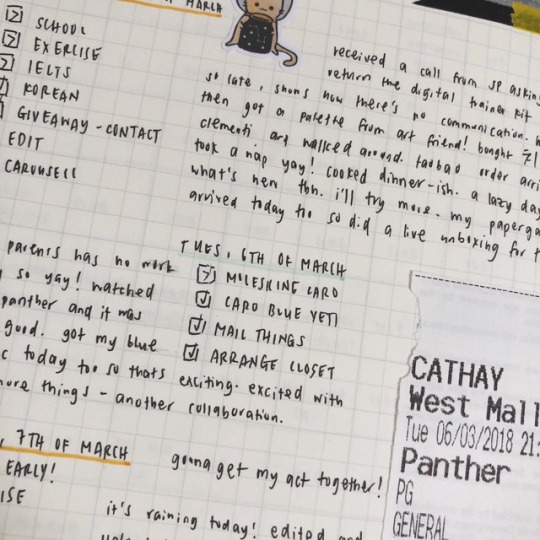 MARCH
SCHOOL
EXERCISE
IELTS
KOREAN
GIVEAWAY - CONTACT
EDIT
CAROUSELL
received a call from SP asking
so late, shows how there's no communication.
return the digital trainer kit
then got a palette from art friend! bought
clementi art walked around. taobao order
took a nap yay! cooked dinner-ish. a lazy day
what's new tbh. i'll try more. my
arrived today too so did a live unboxing for
parents has no work
so yay! watched
panther and it was
good. got my blue
today too so thats
more things - another collaboration.
TUES, 6TH OF MARCH
MOLESKINE CARD
CARD BLUE YETI
MAIL THINGS
ARRANGE CLOSET
exciting. excited with
CATHAY
West Mall
Tue 06/03/2018 21:
Panther
PG
GENERAL
, 7TH OF MARCH
EARLY!
gonna get my act together!
it's raining today! edited and